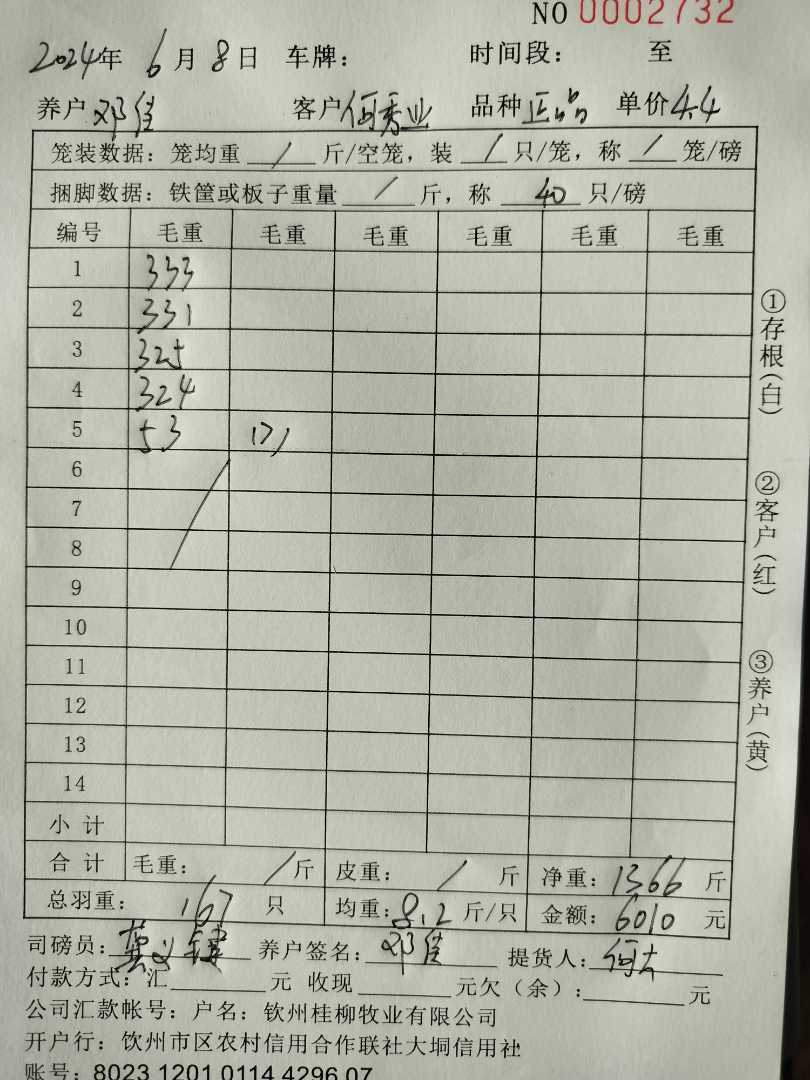 NO 0002732
2024年 6月 8日 车牌： 时间段： 至
养户 邓佳 客户 何秀业 品种 正品 单价 4.4
笼装数据：笼均重 / 斤/空笼，装 / 只/笼，称 / 笼/磅
捆脚数据：铁筐或板子重量 / 斤，称 40 只/磅
编号 毛重 毛重 毛重 毛重 毛重 毛重
1 333
2 331
3 325
4 324
5 53
6
7
8
9
10
11
12
13
14
小计
合计 毛重： / 斤 皮重： / 斤 净重：1366 斤
总羽重： 167 只 均重：8.2 斤/只 金额：6010 元
司磅员： 养户签名：邓佳 提货人：
付款方式：汇 元 收现 元欠（余）： 元
公司汇款帐号：户名：钦州桂柳牧业有限公司
开户行：钦州市区农村信用合作联社大垌信用社
账号：8023 1201 0114 4296 07
①存根（白）
②客户（红）
③养户（黄）